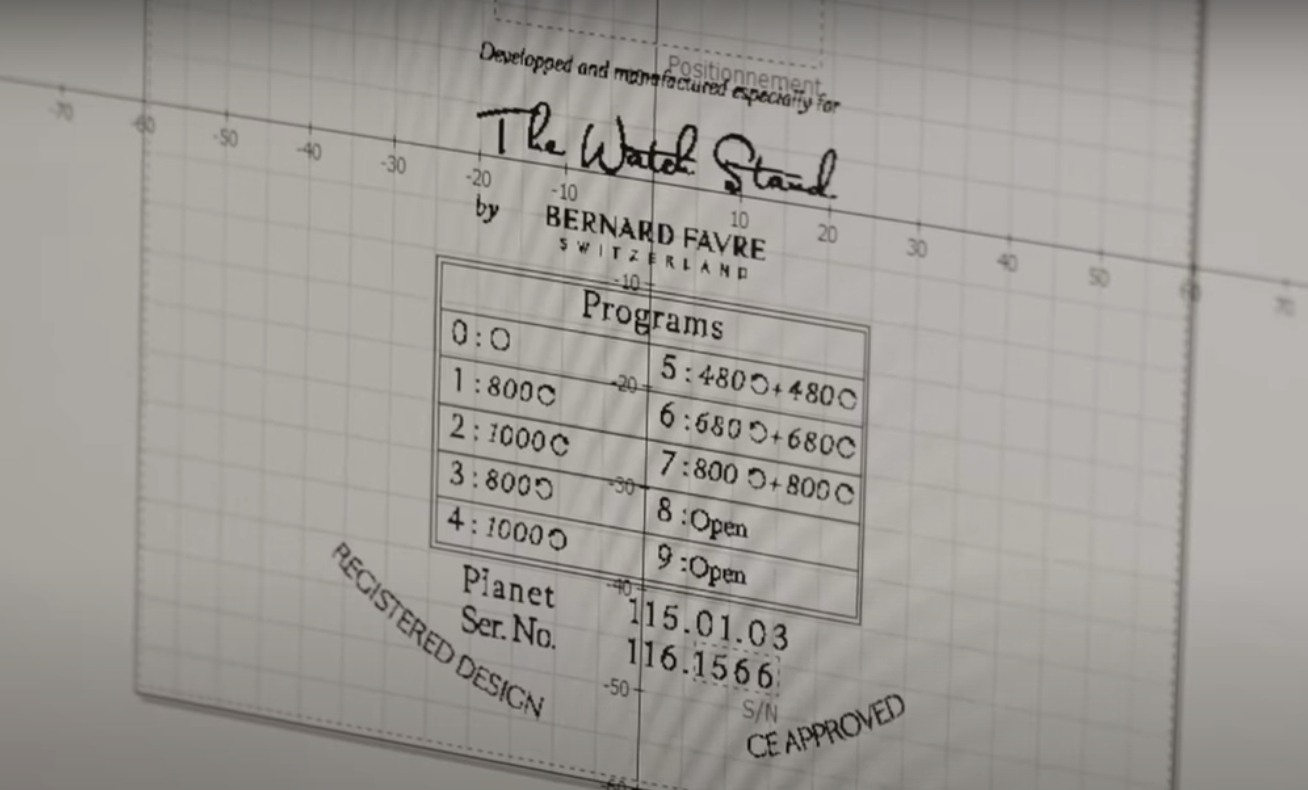 Positionnement
Developped and manufactured especially for
The Watch Stand
-70 -60 -50 -40 -30 -20 -10 10 20 30 40 50 60 70
by BERNARD FAVRE
SWITZERLAND
-10
Programs
0:↻
1:800↻
2:1000↻
3:800↺
4:1000↺
5:480↺+480↻
6:680↺+680↻
7:800↺+800↻
8:Open
9:Open
-20
-30
-40
Planet 115.01.03
Ser. No. 116.1566
-50
S/N
REGISTERED DESIGN
CE APPROVED
-60